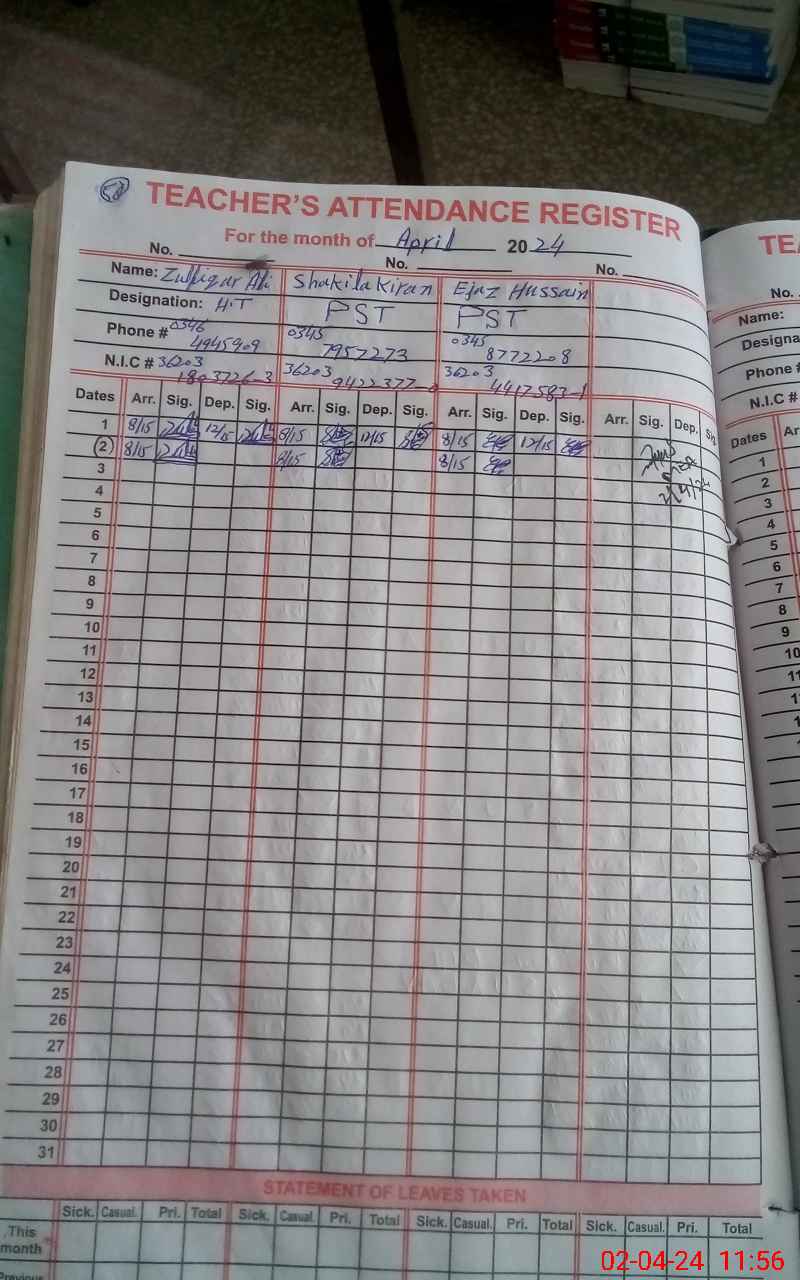 58
TEACHER'S ATTENDANCE REGISTER
For the month of April 2024
No. No. No.
Name: Zulfiqar Ali Shakila Kiran Ejaz Hussain
Designation: H.T PST PST
Phone # 0346 4945909 0345 7957273 0345 8772208
N.I.C # 36203 1803726-3 36203 9422377-0 36203 4417583-1
Dates Arr. Sig. Dep. Sig. Arr. Sig. Dep. Sig. Arr. Sig. Dep. Sig. Arr. Sig. Dep. Sig.
1 8/15 12/15 8/15 12/15 8/15 12/15
2 8/15 8/15 8/15
3 2/4/24
4
5
6
7
8
9
10
11
12
13
14
15
16
17
18
19
20
21
22
23
24
25
26
27
28
29
30
31
STATEMENT OF LEAVES TAKEN
Sick. Casual. Pri. Total Sick. Casual. Pri. Total Sick. Casual. Pri. Total Sick. Casual. Pri. Total
This month
Previous
TE
No.
Name:
Designa
Phone #
N.I.C #
Dates Ar
1
2
3
4
5
6
7
8
9
10
11
02-04-24 11:56